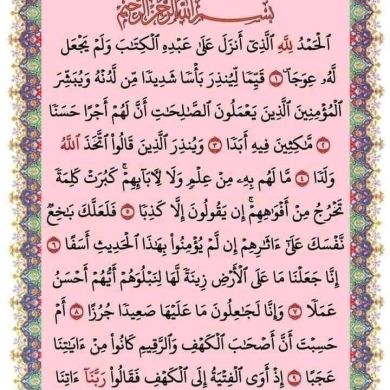 بِسْمِ ٱللَّهِ ٱلرَّحْمَٰنِ ٱلرَّحِيمِ
ٱلْحَمْدُ لِلَّهِ ٱلَّذِىٓ أَنزَلَ عَلَىٰ عَبْدِهِ ٱلْكِتَٰبَ وَلَمْ يَجْعَل
لَّهُۥ عِوَجَاۜ ١ قَيِّمًا لِّيُنذِرَ بَأْسًا شَدِيدًا مِّن لَّدُنْهُ وَيُبَشِّرَ
ٱلْمُؤْمِنِينَ ٱلَّذِينَ يَعْمَلُونَ ٱلصَّٰلِحَٰتِ أَنَّ لَهُمْ أَجْرًا حَسَنًا
٢ مَّٰكِثِينَ فِيهِ أَبَدًا ٣ وَيُنذِرَ ٱلَّذِينَ قَالُوا۟ ٱتَّخَذَ ٱللَّهُ
وَلَدًا ٤ مَّا لَهُم بِهِۦ مِنْ عِلْمٍ وَلَا لِءَابَآئِهِمْ ۚ كَبُرَتْ كَلِمَةً
تَخْرُجُ مِنْ أَفْوَٰهِهِمْ ۚ إِن يَقُولُونَ إِلَّا كَذِبًا ٥ فَلَعَلَّكَ بَٰخِعٌ
نَّفْسَكَ عَلَىٰٓ ءَاثَٰرِهِمْ إِن لَّمْ يُؤْمِنُوا۟ بِهَٰذَا ٱلْحَدِيثِ أَسَفًا ٦
إِنَّا جَعَلْنَا مَا عَلَى ٱلْأَرْضِ زِينَةً لَّهَا لِنَبْلُوَهُمْ أَيُّهُمْ أَحْسَنُ
عَمَلًا ٧ وَإِنَّا لَجَٰعِلُونَ مَا عَلَيْهَا صَعِيدًا جُرُزًا ٨ أَمْ
حَسِبْتَ أَنَّ أَصْحَٰبَ ٱلْكَهْفِ وَٱلرَّقِيمِ كَانُوا۟ مِنْ ءَايَٰتِنَا
عَجَبًا ٩ إِذْ أَوَى ٱلْفِتْيَةُ إِلَى ٱلْكَهْفِ فَقَالُوا۟ رَبَّنَآ ءَاتِنَا